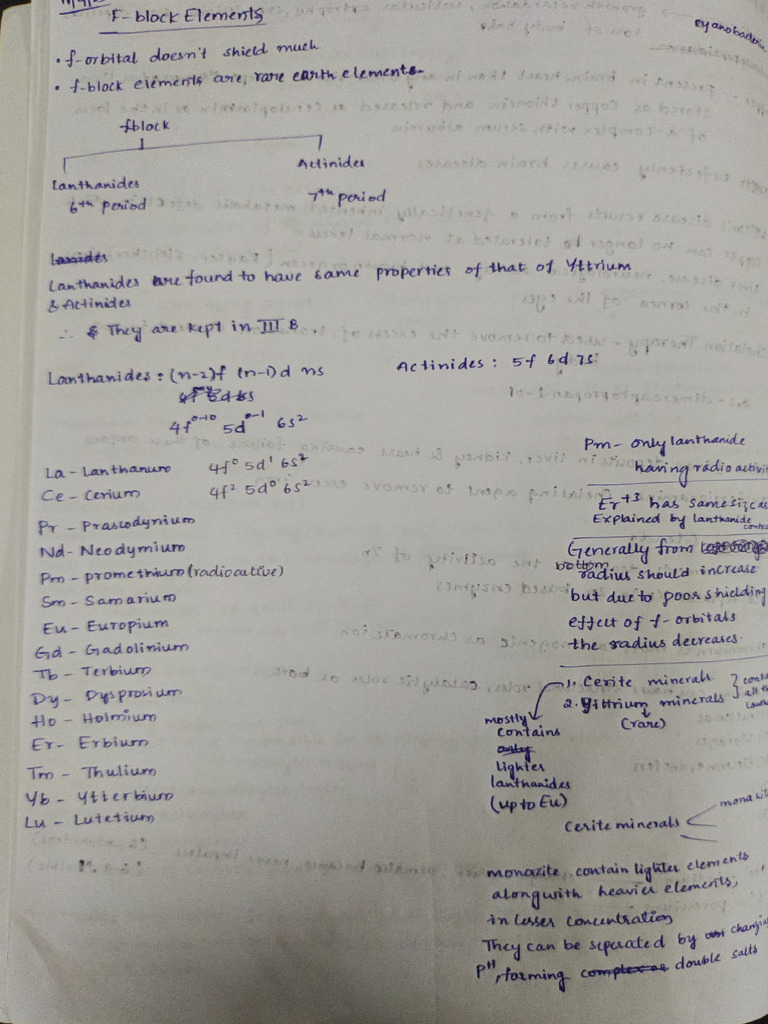 F-block Elements
cyanobacteria
• f-orbital doesn't shield much
• f-block elements are, rare earth elements.
fblock
Lanthanides
6th period
Actinides
7th period
Lanthanides are found to have same properties of that of Yttrium
& Actinides
∴ They are kept in III B
Lanthanides : (n-2)f (n-1)d ns
4f⁰⁻¹⁰ 5d⁰⁻¹ 6s²
Actinides : 5f 6d 7s
La - Lanthanum 4f⁰ 5d¹ 6s²
Ce - Cerium 4f² 5d⁰ 6s²
Pr - Prascodynium
Nd - Neodymium
Pm - promethium (radioactive)
Sm - Samarium
Eu - Europium
Gd - Gadolinium
Tb - Terbium
Dy - Dysprosium
Ho - Holmium
Er - Erbium
Tm - Thulium
Yb - Ytterbium
Lu - Lutetium
Pm - only lanthanide
having radio activi
Er⁺³ has same size as
Explained by lanthanide
Generally from
bottom radius should increase
but due to poor shielding
effect of f-orbitals
the radius decreases.
1. Cerite minerals
2. Yittrium minerals
(rare)
mostly
contains
lighter
lanthanides
(up to Eu)
Cerite minerals
monazit
monazite contain lighter elements
along with heavier elements,
in lesser concentration
They can be seperated by changing
pH, forming double salts